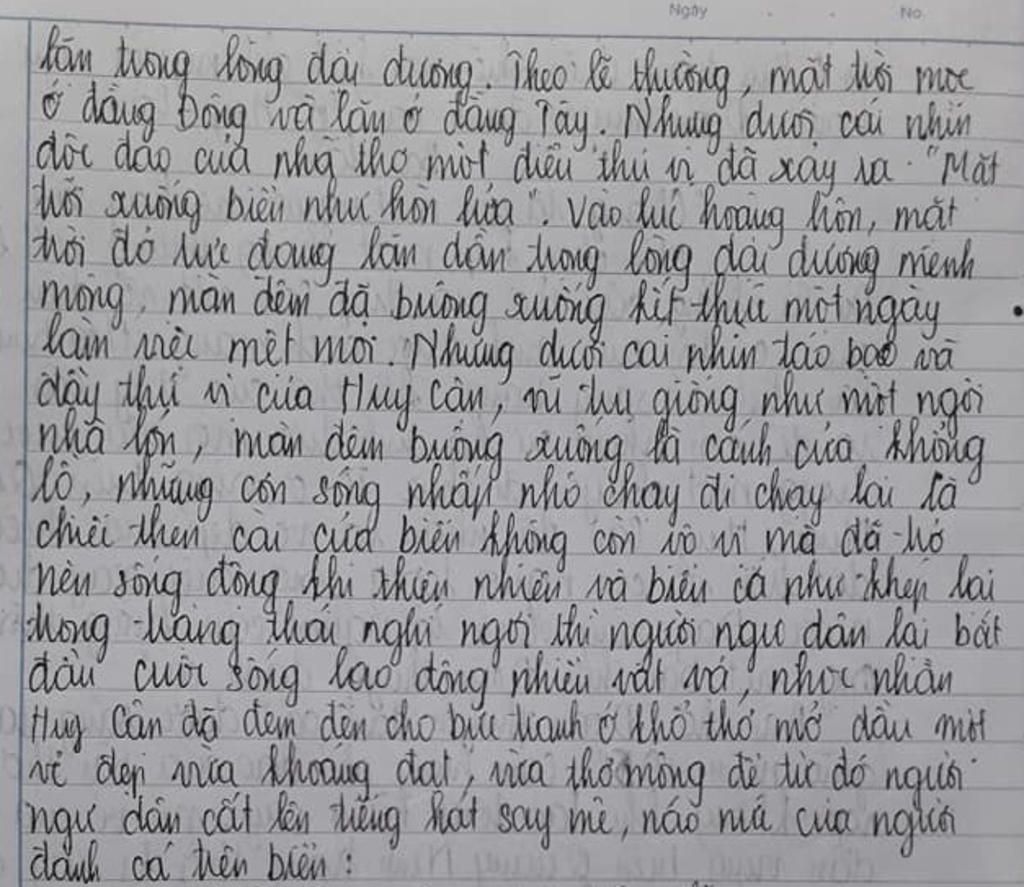 Ngày No.
lặn trong lòng đại dương. Theo lẽ thường, mặt trời mọc
ở đằng Đông và lặn ở đằng Tây. Nhưng dưới cái nhìn
độc đáo của nhà thơ một điều thú vị đã xảy ra "Mặt
trời xuống biển như hòn lửa". Vào lúc hoàng hôn, mặt
trời đỏ rực đang lặn dần trong lòng đại dương mênh
mông, màn đêm đã buông xuống kết thúc một ngày
làm việc mệt mỏi. Nhưng dưới cái nhìn táo bạo và
đầy thú vị của Huy Cận, vũ trụ giống như một ngôi
nhà lớn, màn đêm buông xuống là cánh cửa khổng
lồ, những con sóng nhấp nhô chạy đi chạy lại là
chiếc then cài cửa biển không còn vô vị mà đã trở
nên sống động khi thiên nhiên và biển cả như khép lại
trong trạng thái nghỉ ngơi thì người ngư dân lại bắt
đầu cuộc sống lao động nhiều vất vả, nhọc nhằn
Huy Cận đã đem đến cho bức tranh ở khổ thơ mở đầu một
vẻ đẹp vừa khoáng đạt, vừa thơ mộng để từ đó người
ngư dân cất lên tiếng hát say mê, náo nức của người
đánh cá trên biển: